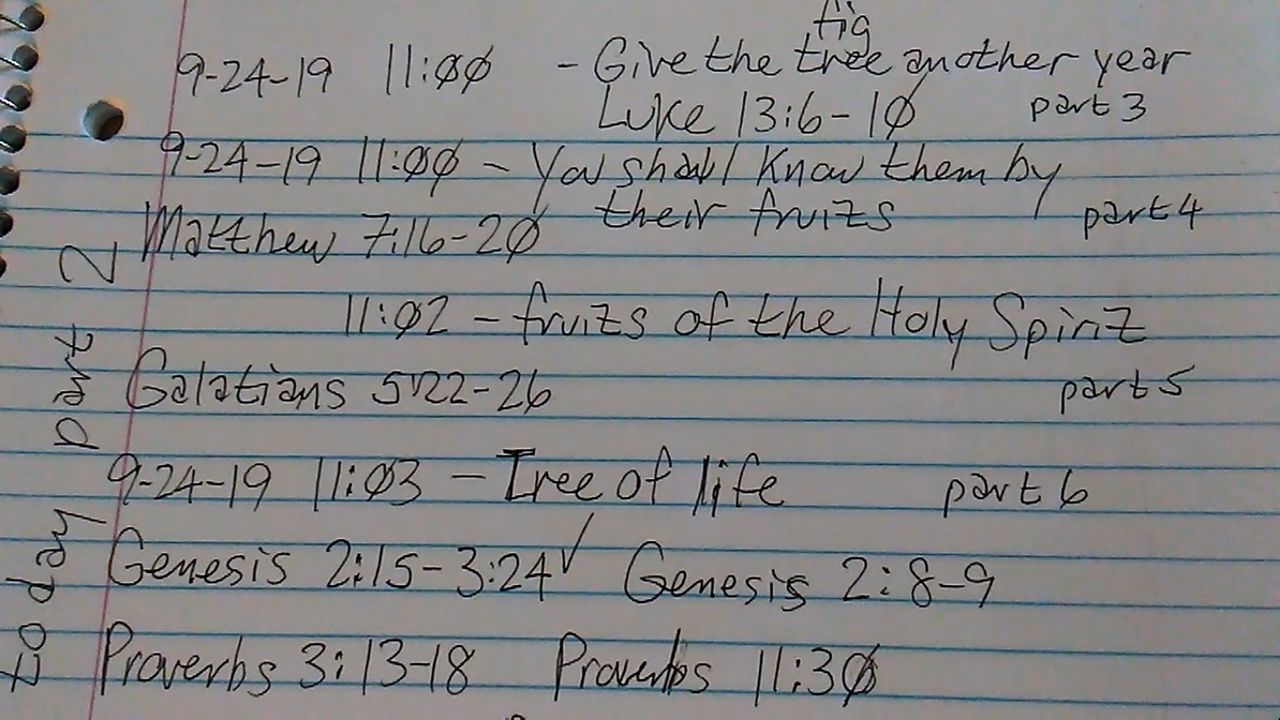 9-24-19 11:00 - Give the fig tree another year
Luke 13:6-10 part 3
9-24-19 11:00 - You shall know them by
their fruits part 4
Matthew 7:16-20
11:02 - fruits of the Holy Spirit
Galatians 5:22-26 part 5
9-24-19 11:03 - Tree of life part 6
Genesis 2:15-3:24✓ Genesis 2:8-9
Proverbs 3:13-18 Proverbs 11:30
today part 2